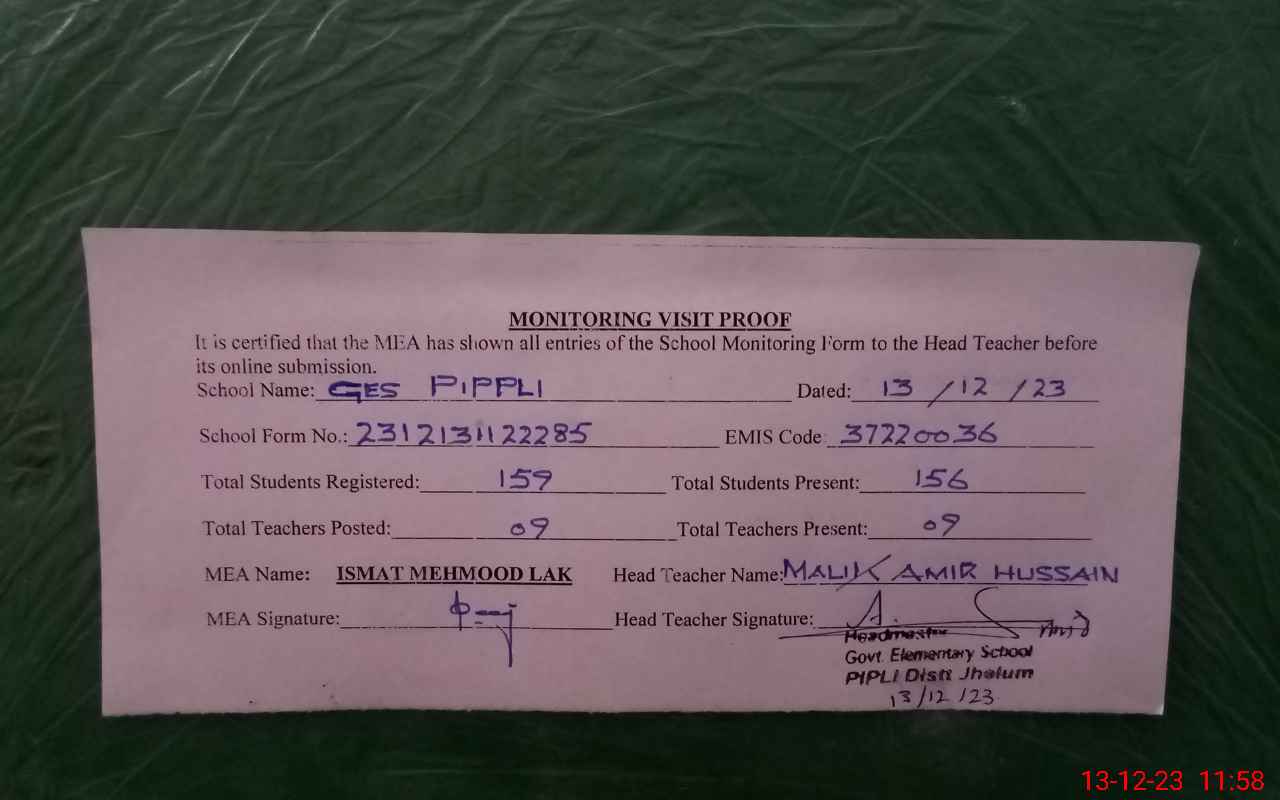 MONITORING VISIT PROOF
It is certified that the MEA has shown all entries of the School Monitoring Form to the Head Teacher before
its online submission.
School Name: GES PIPPLI Dated: 13 / 12 / 23
School Form No.: 2312131122285 EMIS Code: 37220036
Total Students Registered: 159 Total Students Present: 156
Total Teachers Posted: 09 Total Teachers Present: 09
MEA Name: ISMAT MEHMOOD LAK Head Teacher Name: MALIK AMIR HUSSAIN
MEA Signature: Head Teacher Signature:
Headmaster
Govt. Elementary School
PIPLI Distt Jhelum
13/12/23
13-12-23 11:58